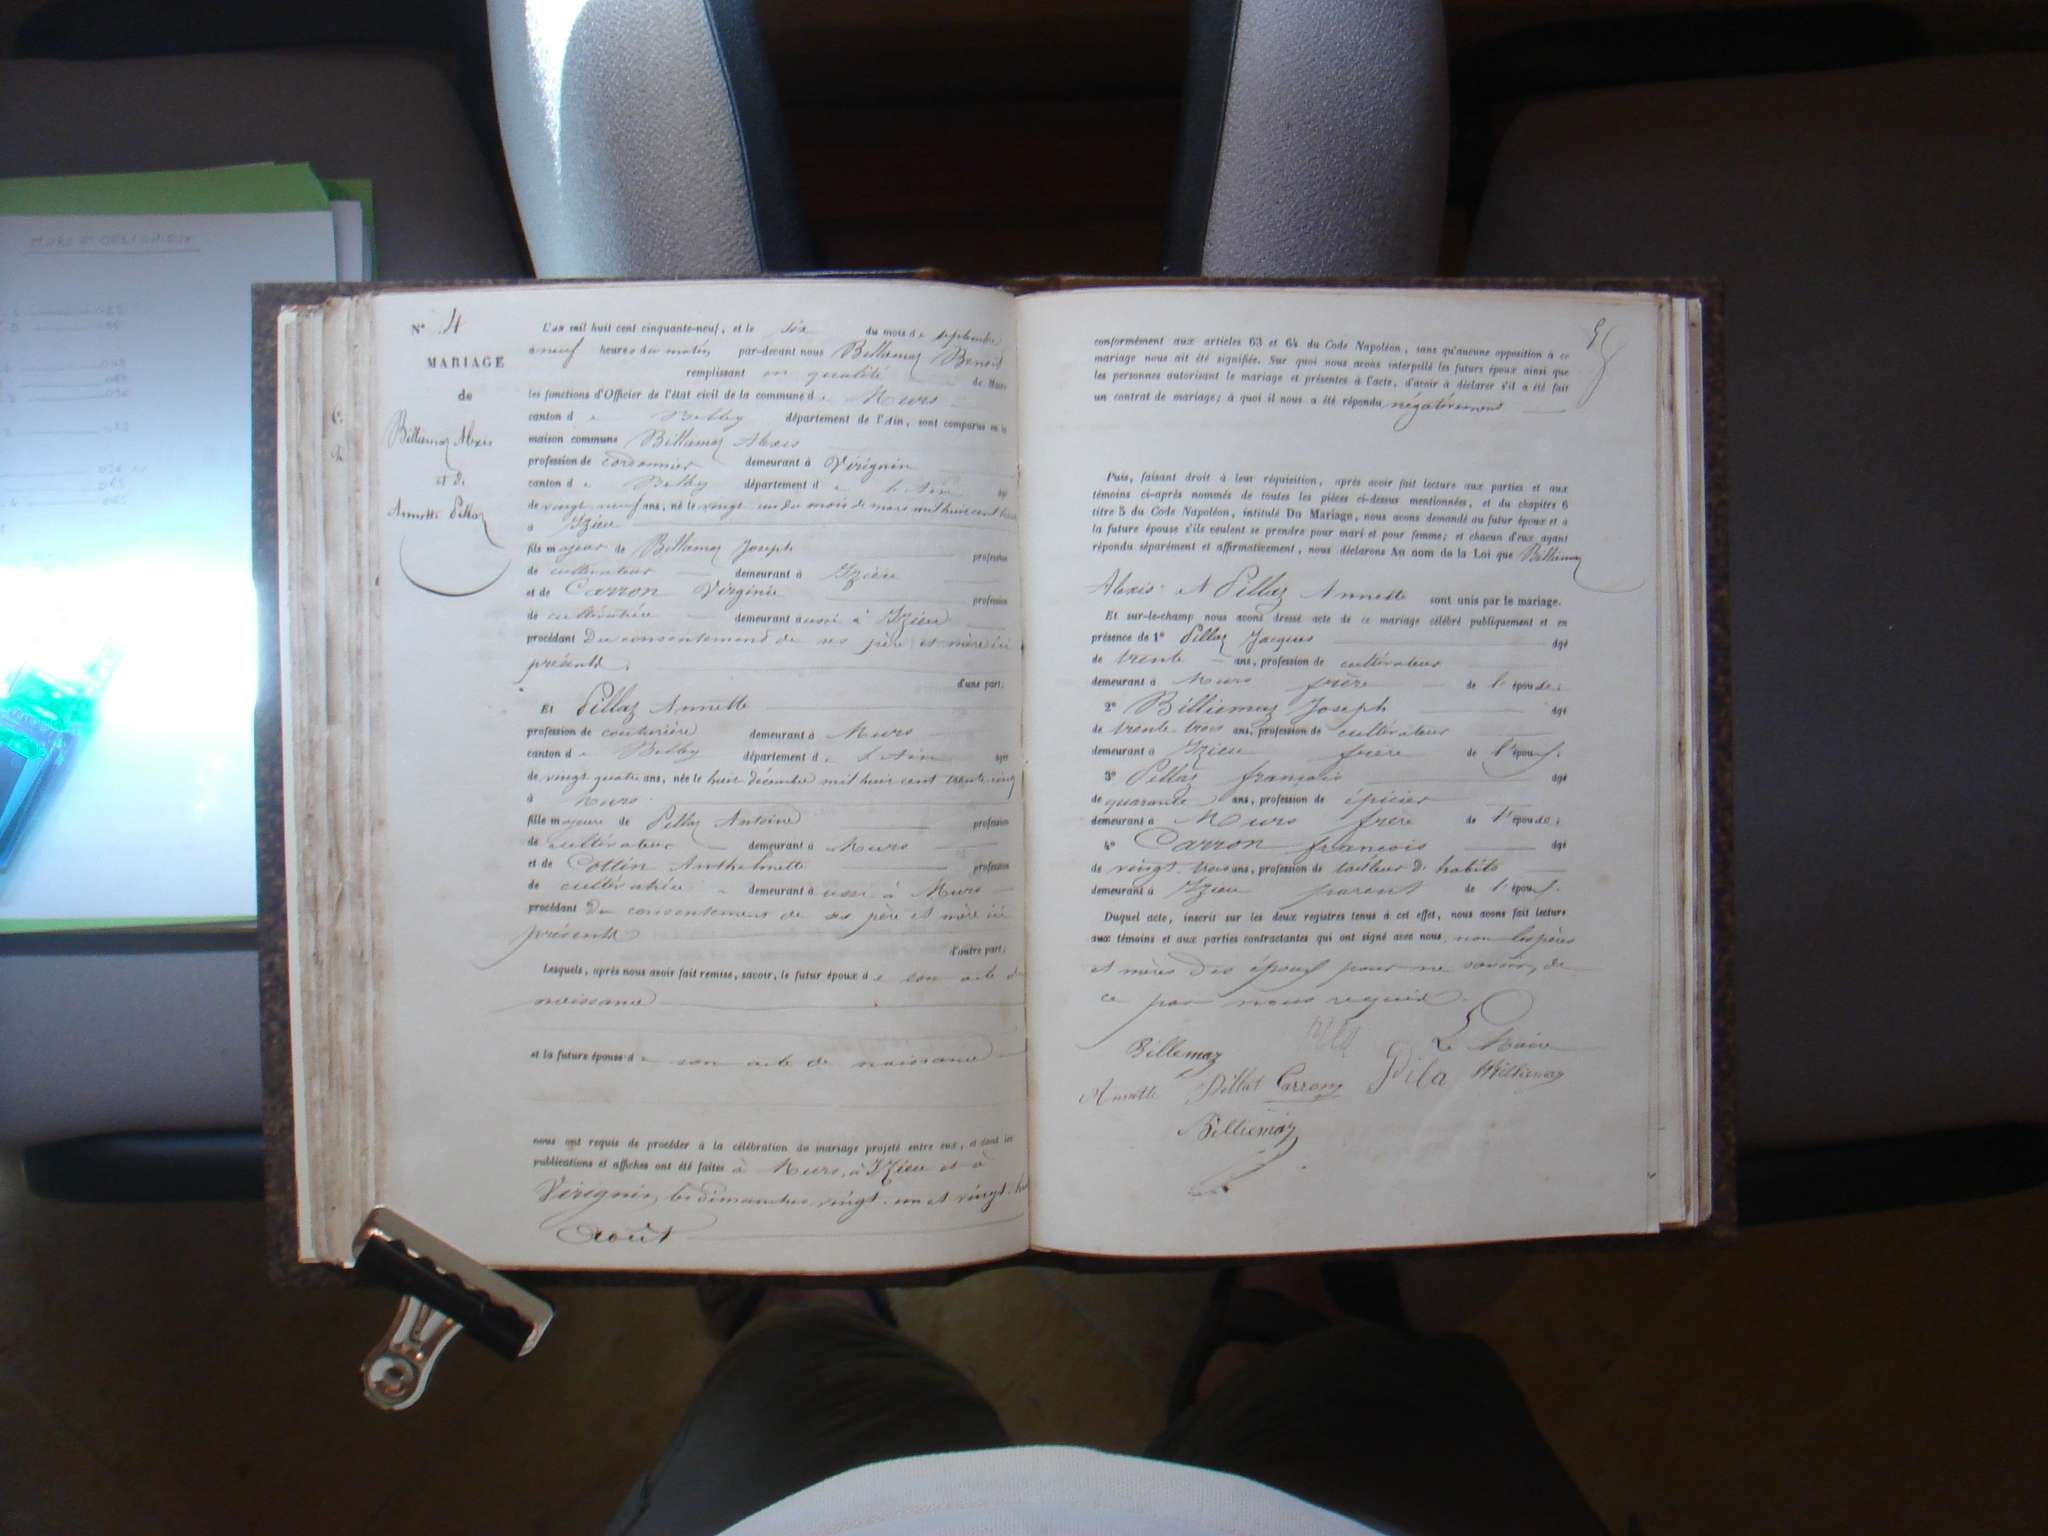 N° 4
MARIAGE
de
Billiemaz Alexis
et de
Annette Pillaz
L'an mil huit cent cinquante-neuf, et le six du mois de septembre
à neuf heures du matin par-devant nous Billiemaz Benoit
remplissant en qualité de Maire
les fonctions d'Officier de l'état civil de la commune de Murs
canton de Belley département de l'Ain, sont comparus en la
maison commune Billiemaz Alexis
profession de cordonnier demeurant à Virignin
canton de Belley département de l'Ain âgé
de vingt neuf ans, né le vingt un du mois de mars mil huit cent trente
à Izieu
fils majeur de Billiemaz Joseph profession
de cultivateur demeurant à Izieu
et de Carron Virginie profession
de cultivatrice demeurant aussi à Izieu
procédant du consentement de ses père et mère ici
présents.
d'une part;
Et Pillaz Annette
profession de couturière demeurant à Murs
canton de Belley département de l'Ain âgée
de vingt quatre ans, née le huit décembre mil huit cent trente cinq
à Murs
fille majeure de Pillaz Antoine profession
de cultivateur demeurant à Murs
et de Cottin Anthelmette profession
de cultivatrice demeurant aussi à Murs
procédant du consentement de ses père et mère ici
présents
d'autre part;
Lesquels, après nous avoir fait remise, savoir, le futur époux de son acte de
naissance
et la future épouse de son acte de naissance
nous ont requis de procéder à la célébration du mariage projeté entre eux, et dont les
publications et affiches ont été faites à Murs, à Izieu et à
Virignin, les dimanches vingt-un et vingt-huit
Août
conformément aux articles 63 et 64 du Code Napoléon, sans qu'aucune opposition à ce
mariage nous ait été signifiée. Sur quoi nous avons interpellé les futurs époux ainsi que
les personnes autorisant le mariage et présentes à l'acte, d'avoir à déclarer s'il a été fait
un contrat de mariage; à quoi il nous a été répondu négativement
Puis, faisant droit à leur réquisition, après avoir fait lecture aux parties et aux
témoins ci-après nommés de toutes les pièces ci-dessus mentionnées, et du chapitre 6
titre 5 du Code Napoléon, intitulé Du Mariage, nous avons demandé au futur époux et à
la future épouse s'ils veulent se prendre pour mari et pour femme; et chacun d'eux ayant
répondu séparément et affirmativement, nous déclarons Au nom de la Loi que Billiemaz
Alexis et Pillaz Annette sont unis par le mariage.
Et sur-le-champ nous avons dressé acte de ce mariage célébré publiquement et en
présence de 1° Pillaz Jacques âgé
de trente ans, profession de cultivateur
demeurant à Murs frère de l'épouse;
2° Billiemaz Joseph âgé
de trente trois ans, profession de cultivateur
demeurant à Izieu frère de l'époux;
3° Pillaz françois âgé
de quarante ans, profession de épicier
demeurant à Murs frère de l'épouse;
4° Carron françois âgé
de vingt trois ans, profession de tailleur d'habits
demeurant à Izieu parent de l'époux.
Duquel acte, inscrit sur les deux registres tenus à cet effet, nous avons fait lecture
aux témoins et aux parties contractantes qui ont signé avec nous, non les pères
et mères des époux pour ne savoir, de
ce par nous requis.
Le Maire
Billemaz
Pila
Billiemaz
Annette Pillat Carron
Billiemaz